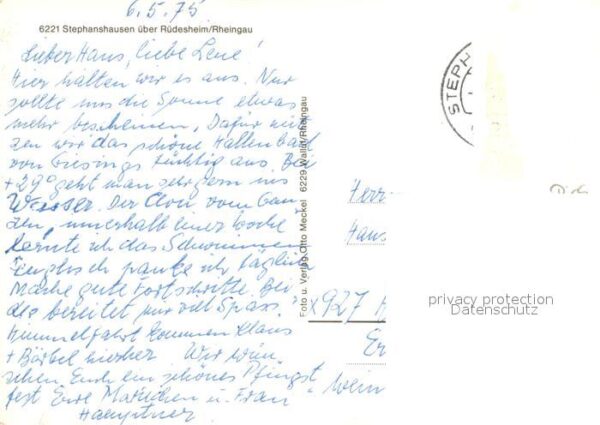 6.5.75
6221 Stephanshausen über Rüdesheim/Rheingau
Lieber Hans, liebe Lene!
Hier halten wir es aus. Nur
sollte uns die Sonne etwas
mehr bescheinen. Dafür nüt-
zen wir das schöne Hallenbad
von tüchtig aus. Bei
+29° geht man sehr gern ins
Wasser. Der Clou vom Gan-
zen, innerhalb einer Woche
lernte ich das Schwimmen
Englisch pauke ich täglich
Mache gute Fortschritte. Bei
des bereitet mir viel Spass.
Himmelfahrt kommen Klaus
+ Bärbel hierher. Wir wün-
schen Euch ein schönes Pfingst
fest Eure u. Frau
Foto u. Verlag Otto Meckel 6229 Walluf/Rheingau
STEPH
Herr
Hans
x927
privacy protection
Datenschutz